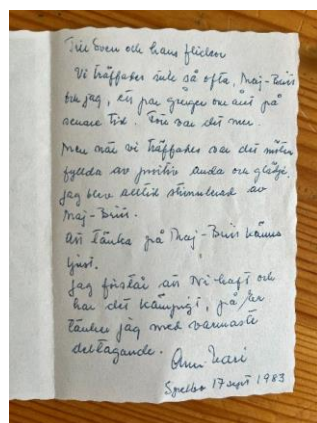 Till Sven och hans flickor
Vi träffades inte så ofta, Maj-Britt
och jag, ett par gånger om året på
senare tid. Förr var det mer.
Men när vi träffades var det möten
fyllda av positiv anda och glädje.
Jag blev alltid stimulerad av
Maj-Britt.
Att tänka på Maj-Britt känns
ljust.
Jag förstår att Ni haft och
har det kämpigt, på Er
tänker jag med varmaste
deltagande.
17 sept 1983